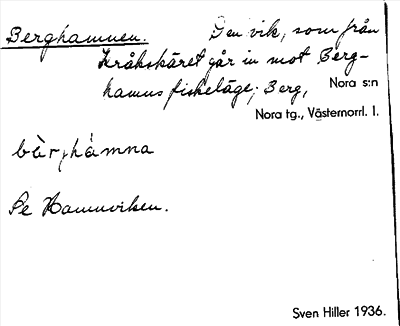 Berghamnen. Den vik, som från
Kråkskäret går in mot Berg-
hamns fiskeläge; Berg, Nora s:n
Nora tg., Västernorrl. l.
bær,hàmna
Se Hamnviken.
Sven Hiller 1936.